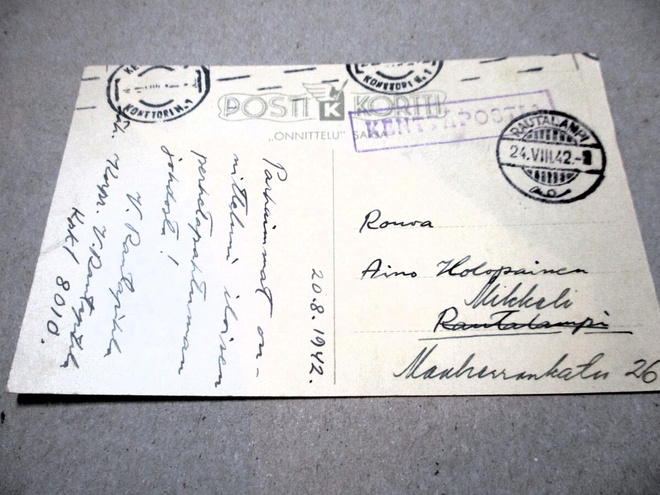 KONTTORI N.1
KONTTORI N.1
POSTI K KORTTI
„ONNITTELU"
KENTTÄPOSTIA
RAUTALAMPI
24.VIII.42.-
20.8.1942.
Parhaimmat on-
nittelumi iloisen
perhetapahtuman
johdosta!
V. Rautapihla
V. Rautapihla
Kpk 1 8010.
Rouva
Aino Holopainen
Mikkeli
Rautalampi
Maaherrankatu 26